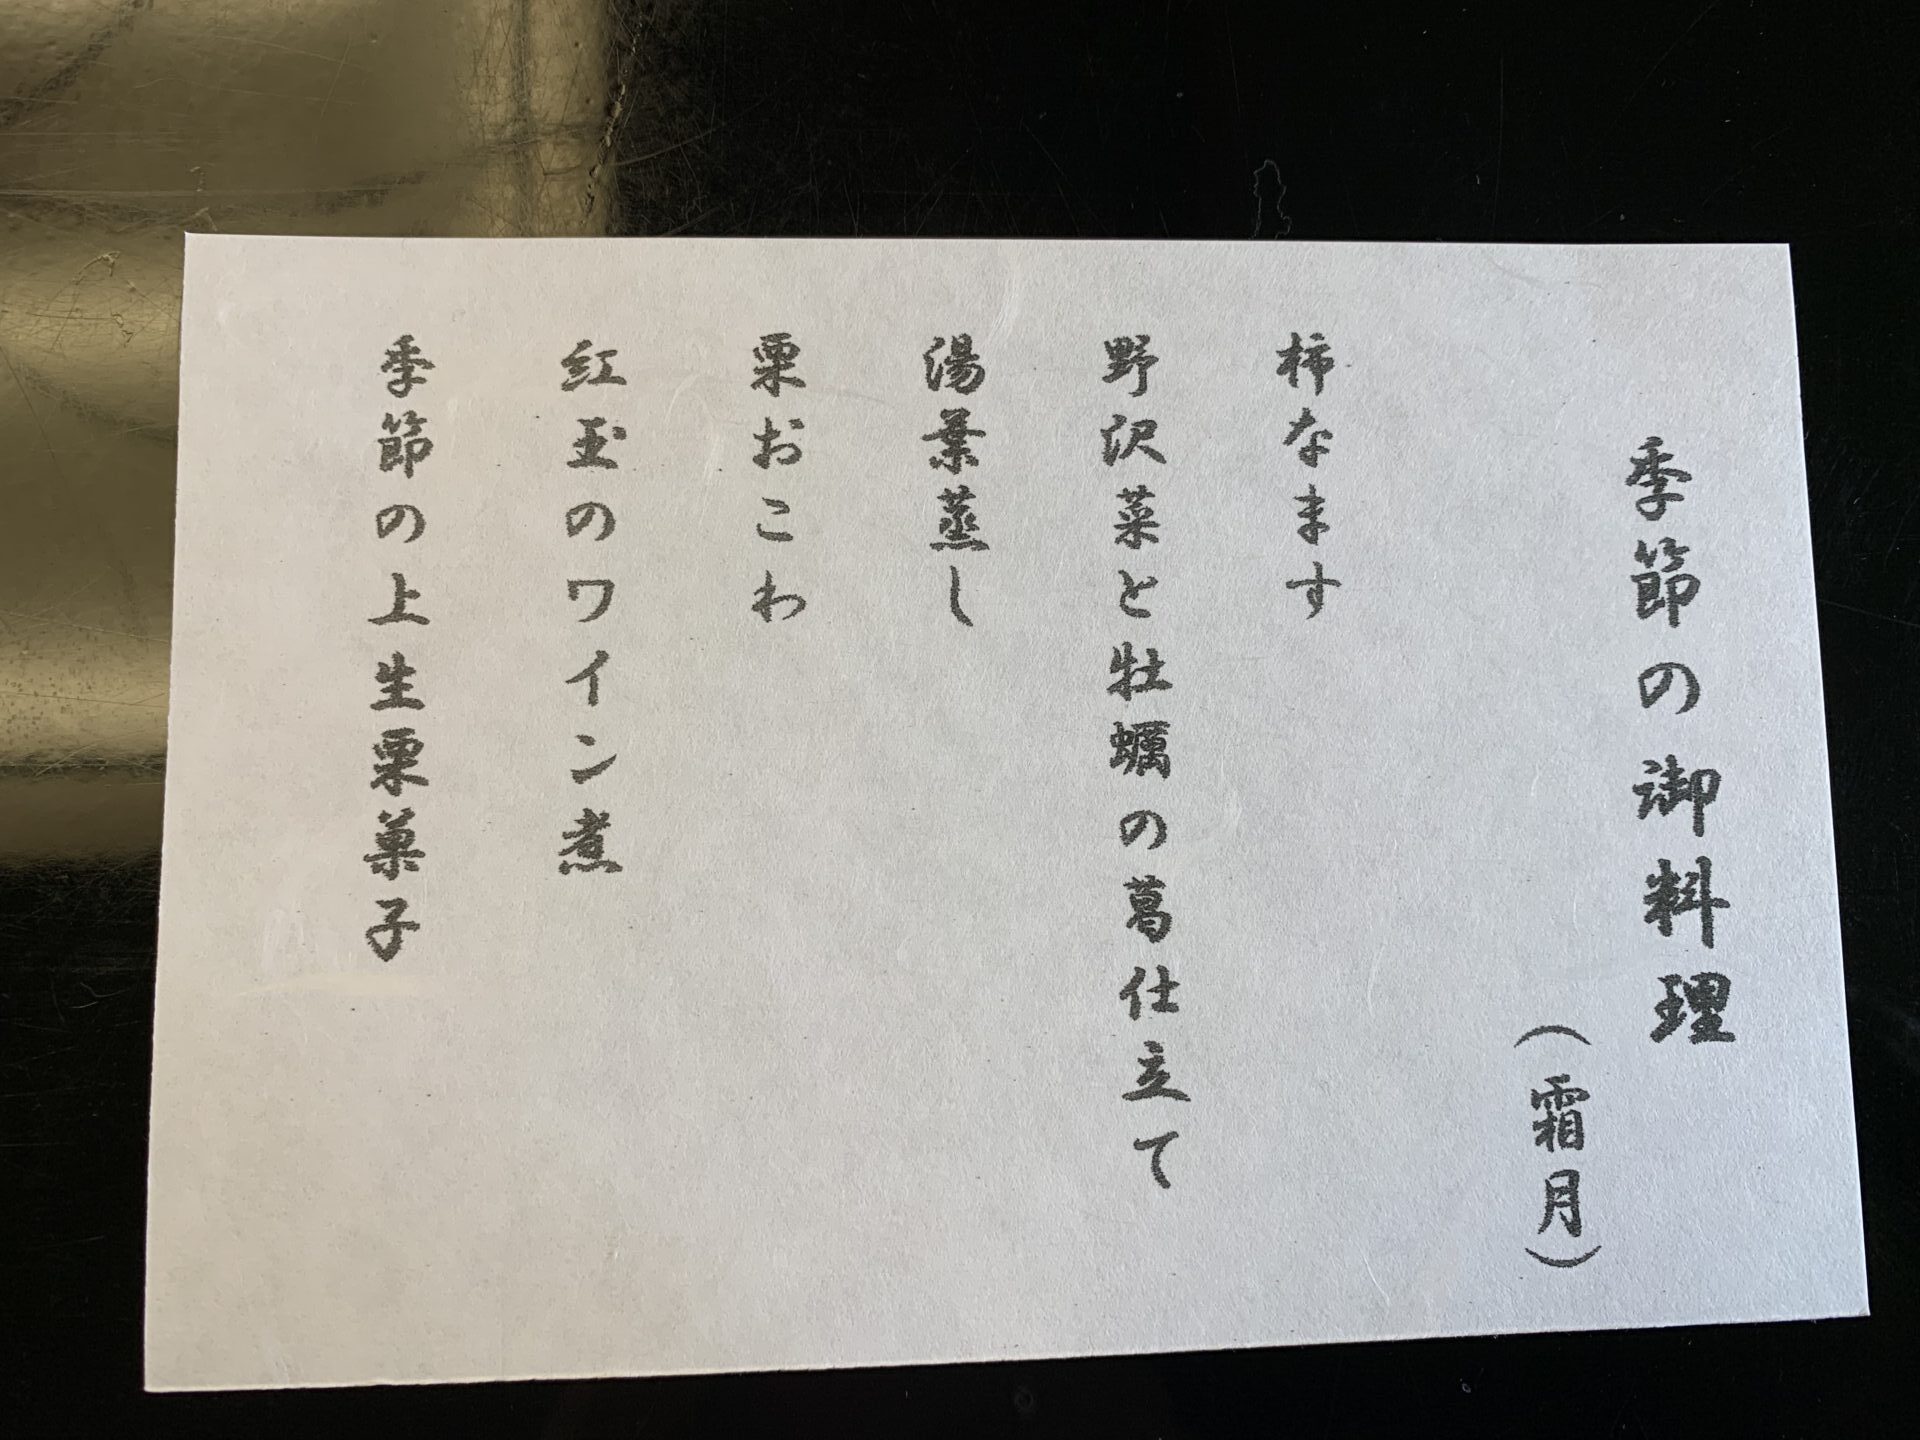 季節の御料理
（霜月）
柿なます
野沢菜と牡蠣の葛仕立て
湯葉蒸し
栗おこわ
紅玉のワイン煮
季節の上生栗菓子